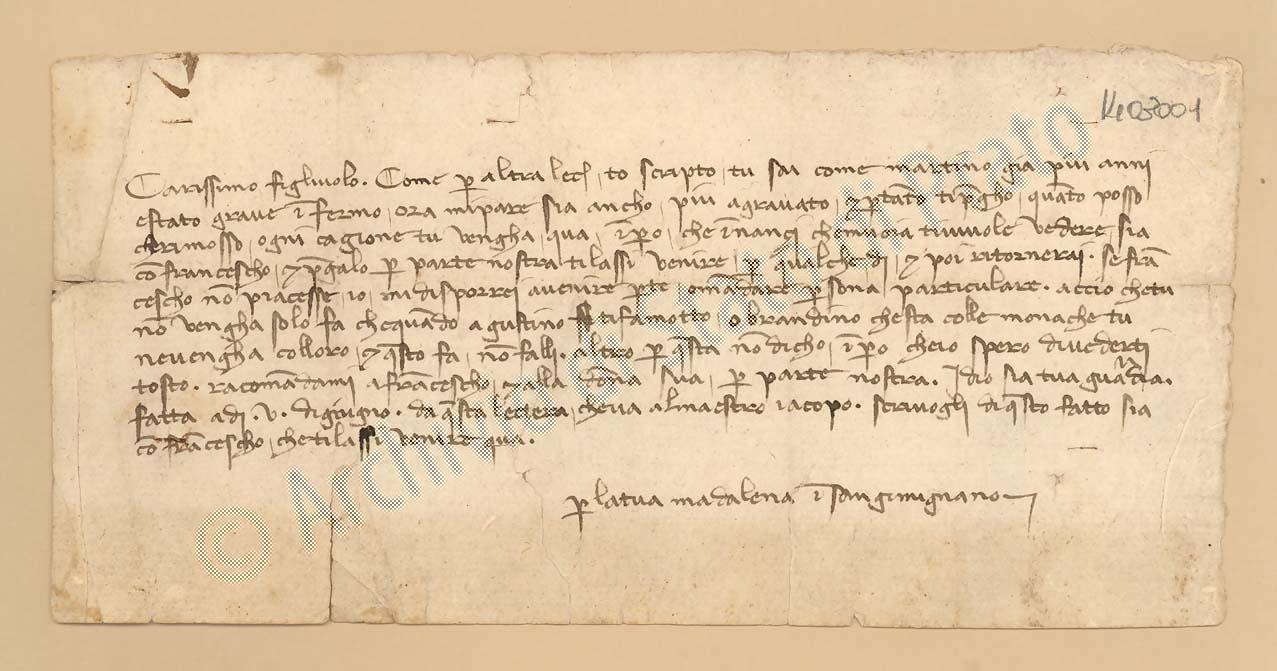 1403001
Carissimo figliuolo. Come ꝑ altra lect̄ , to scripto , tu sai come martino gia piu anni
estato grave īfermo , ora mipare sia ancho , piu agravato , ⁊ ꝑtāto tip̄gho , quāto posso
che rimosso , ogni cagione tu vengha , qua , īꝑo , che īnançi chemuoia tivuole vedere , sia
cō francescho , ⁊ p̄galo ꝑ parte nostra tilassi venire , ꝑ qualche di , ⁊ poi ritornerai . se frā
cescho nō piacesse , io , midisporrei avenire ꝑte , o mādare ꝑsona particulare . accio chetu
nō vengha solo fa chequādo agustino tifamotto , o brandino chesta colle monache tu
nevengha colloro , ⁊ q̄sto fa , nō falli . altro ꝑ q̄sta nō dicho , īꝑo cheio spero divederti
tosto . racomādami afrācescho , ⁊ alla dōna sua , ꝑ parte nostra . Idio sia tua guardia .
fatta adi . v . digiugno . da q̄sta lectera , cheva almaestro iacopo . scrivogli diq̄sto fatto sia
cō frācescho , chetilassi venire qua .
ꝑ latua madalena ī sangimignano
© Archivio di Stato di Prato